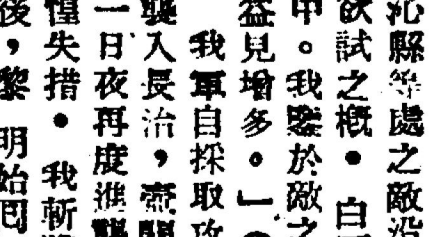 沁縣綫處之敵沿
欲試之槪。白
中。我鑒於敵之
益見增多。」
我軍自採取攻
襲入長治，壺關
一日夜再度進襲
惶失措。我斬
後，黎明始囘